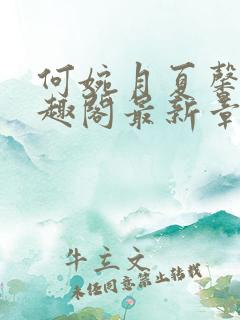 何婉月夏馨
趣阁最新章
牛立文
未经同意禁止转载